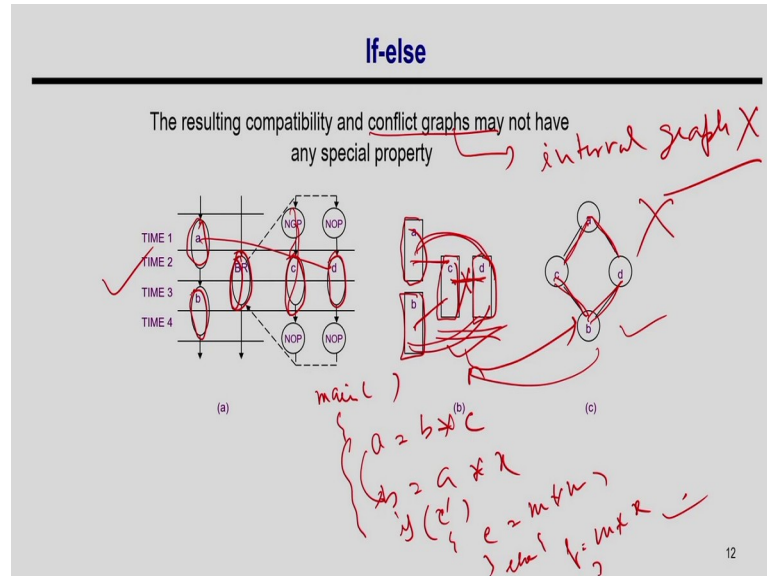 If-else
The resulting compatibility and conflict graphs may not have
any special property
interval graph X
X
NOP NOP
TIME 1 a
TIME 2 BR c d
TIME 3 b
TIME 4 NOP NOP
a
c d
b
a
c d
b
(a) (b) (c)
main ( )
{
a = b * c
b = a * x
if (c')
{ e = m * n
} else {
}
12